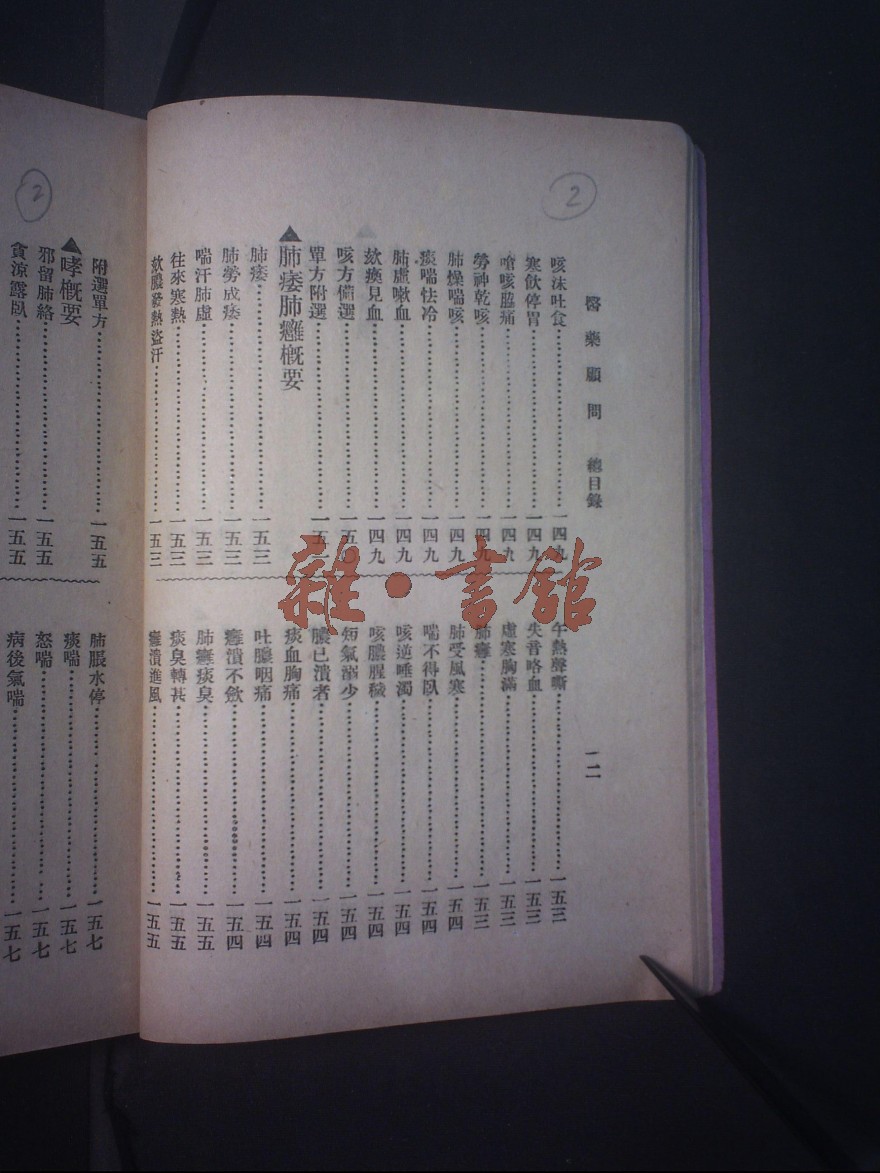 2
醫藥顧問 總目錄 一二
咳沫吐食……一四九
寒飲停胃……一四九
嗆咳脇痛……一四九
勞神乾咳……一四九
肺燥喘咳……一四九
痰喘怯冷……一四九
肺虛嗽血……一四九
欬痰見血……一四九
咳方備選……一五
單方附選……一五
▲肺痿肺癰概要
肺痿……一五三
肺勞成痿……一五三
喘汗肺虛……一五三
往來寒熱……一五三
欬膿發熱盜汗……一五三
午熱聲嘶……一五三
失音咯血……一五三
虛寒胸滿……一五三
肺癰……一五三
肺受風寒……一五四
喘不得臥……一五四
咳逆唾濁……一五四
咳膿腥穢……一五四
短氣溺少……一五四
膿已潰者……一五四
痰血胸痛……一五四
吐膿咽痛……一五四
癰潰不斂……一五四
肺癰痰臭……一五五
痰臭轉甚……一五五
癰潰進風……一五五
2
附選單方……一五五
▲哮概要
邪留肺絡……一五五
貪涼露臥……一五五
肺脹水停……一五七
痰喘……一五七
怒喘……一五七
病後氣喘……一五七
雜·書館